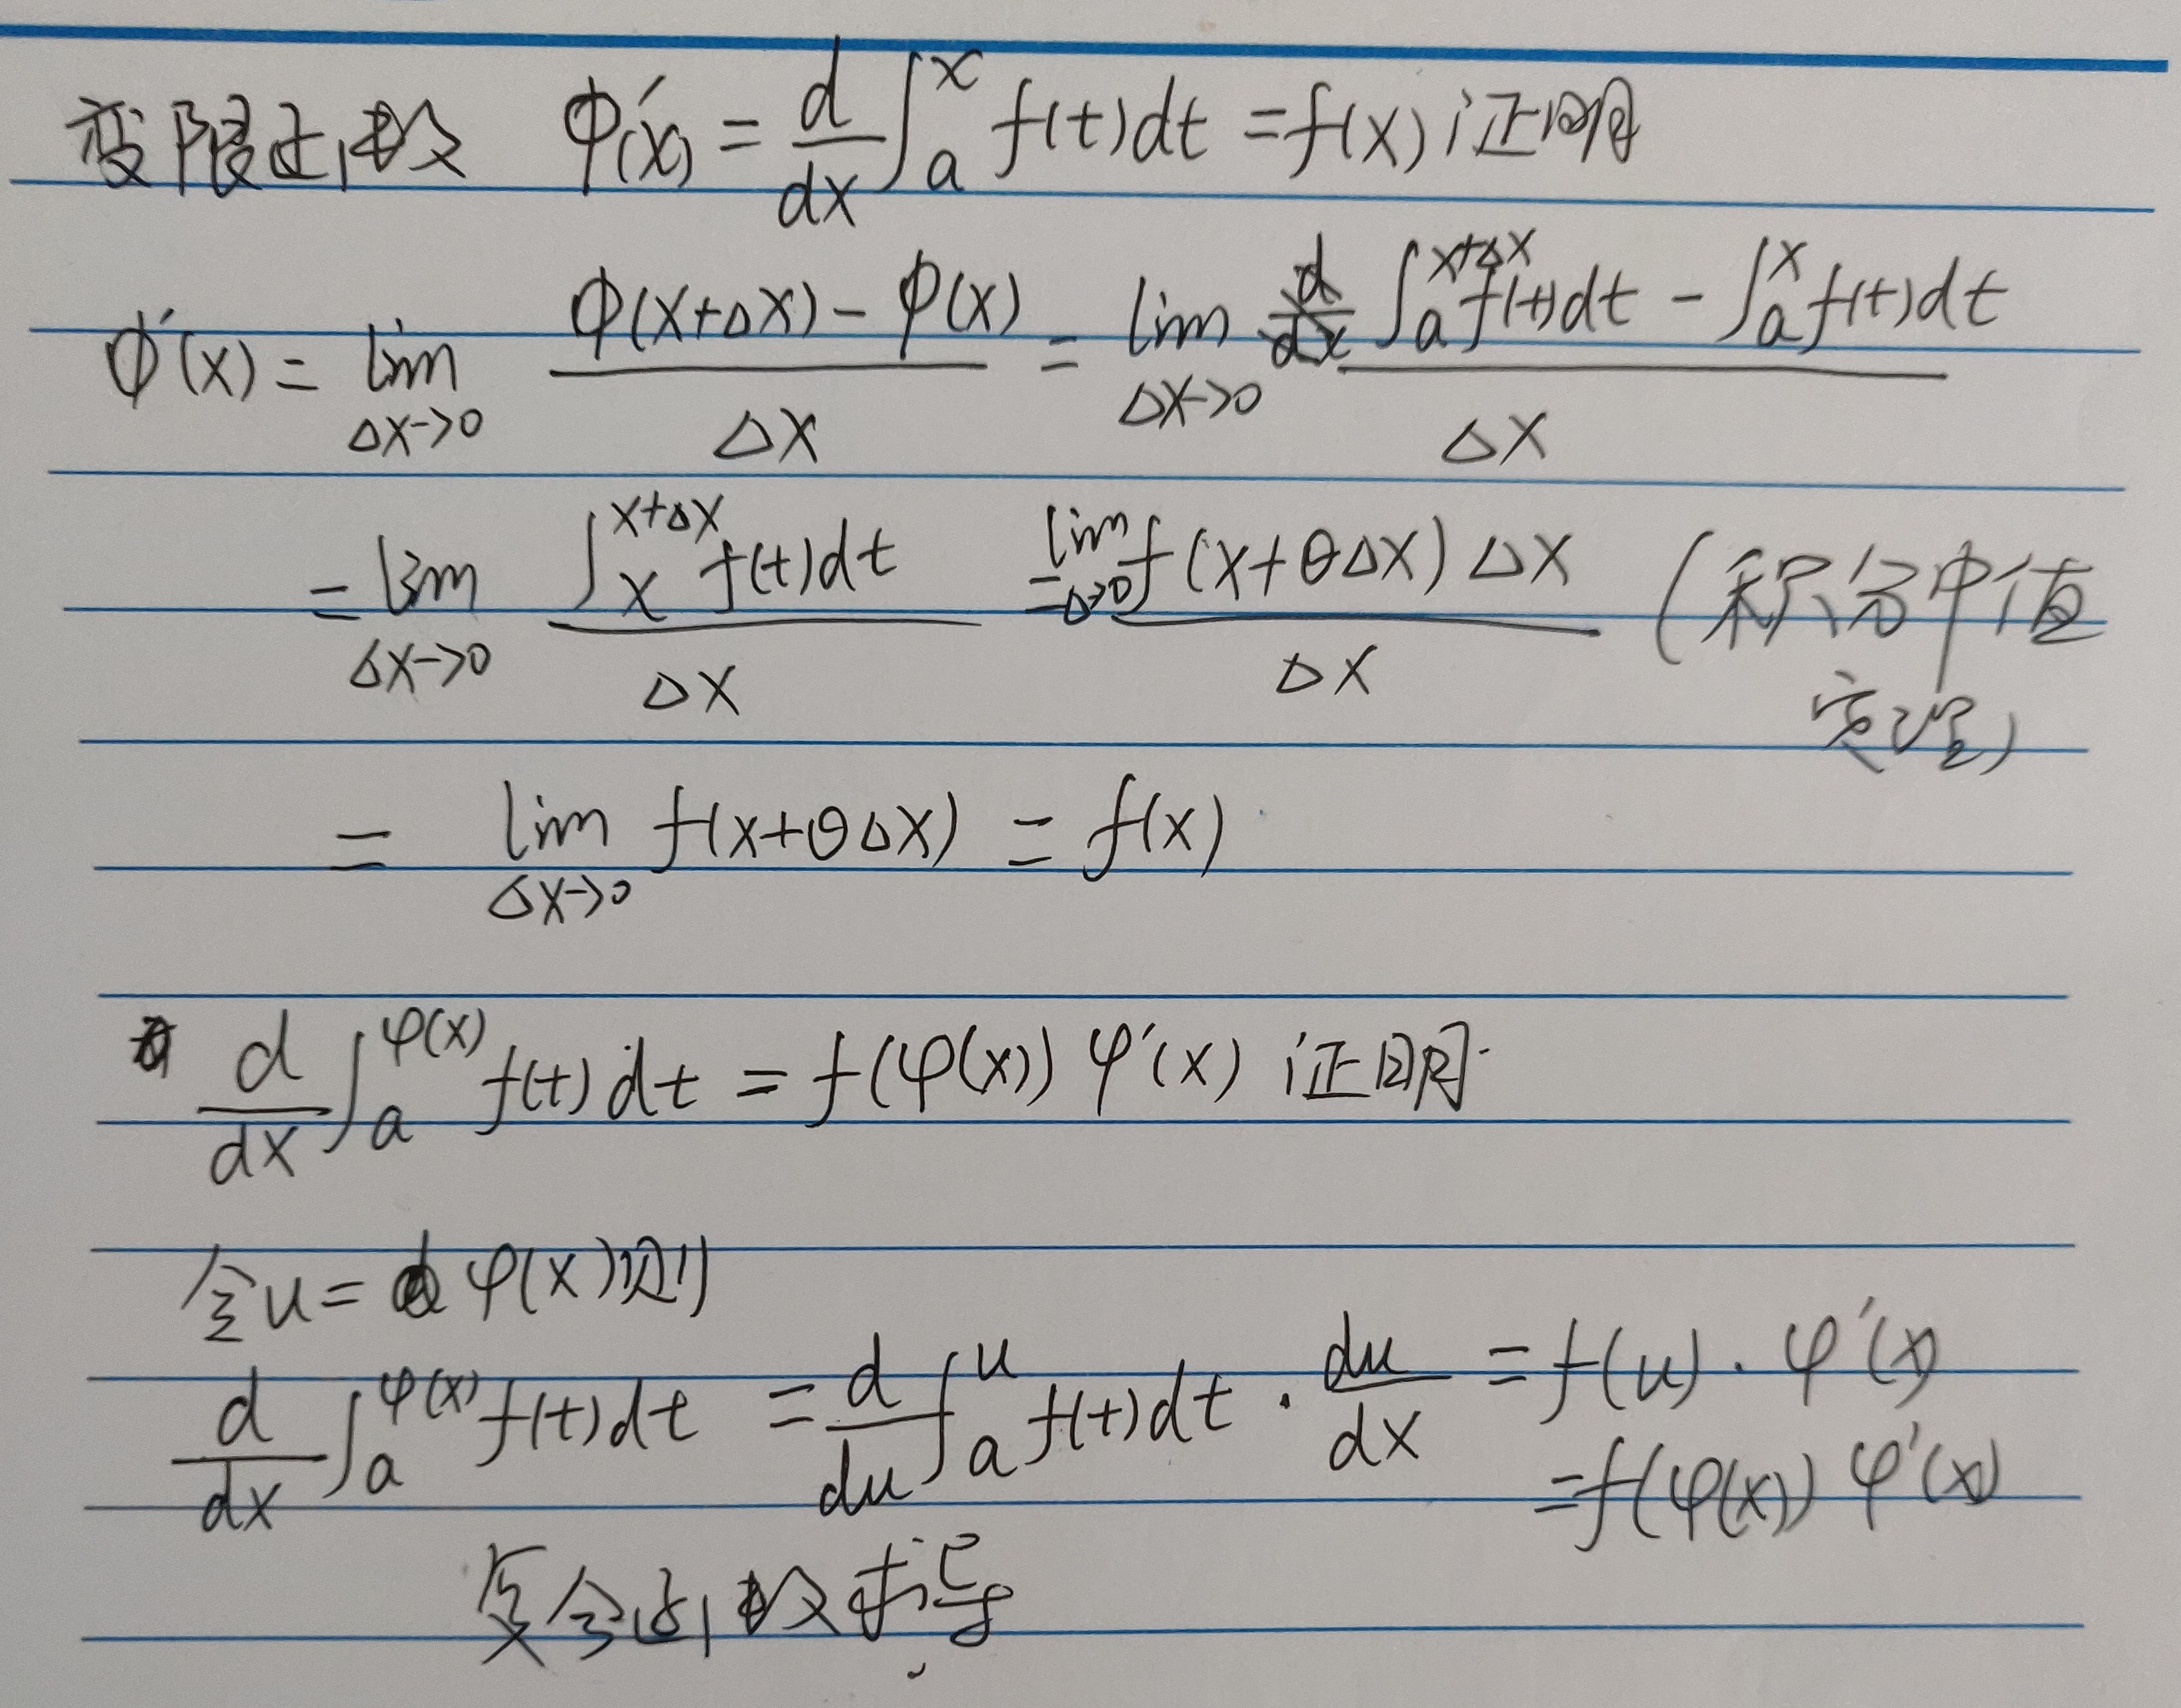 变限函数 Φ'(x) = d/dx ∫_a^x f(t)dt = f(x) 证明
Φ'(x) = lim_{Δx->0} (Φ(x+Δx) - Φ(x))/Δx = lim_{Δx->0} (∫_a^{x+Δx} f(t)dt - ∫_a^x f(t)dt)/Δx
= lim_{Δx->0} (∫_x^{x+Δx} f(t)dt)/Δx = lim_{Δ->0} (f(x+θΔx)Δx)/Δx (积分中值
定理)
= lim_{Δx->0} f(x+θΔx) = f(x)
d/dx ∫_a^{φ(x)} f(t)dt = f(φ(x)) φ'(x) 证明
令u = φ(x) 则
d/dx ∫_a^{φ(x)} f(t)dt = d/du ∫_a^u f(t)dt · du/dx = f(u) · φ'(x)
= f(φ(x)) φ'(x)
复合函数求导